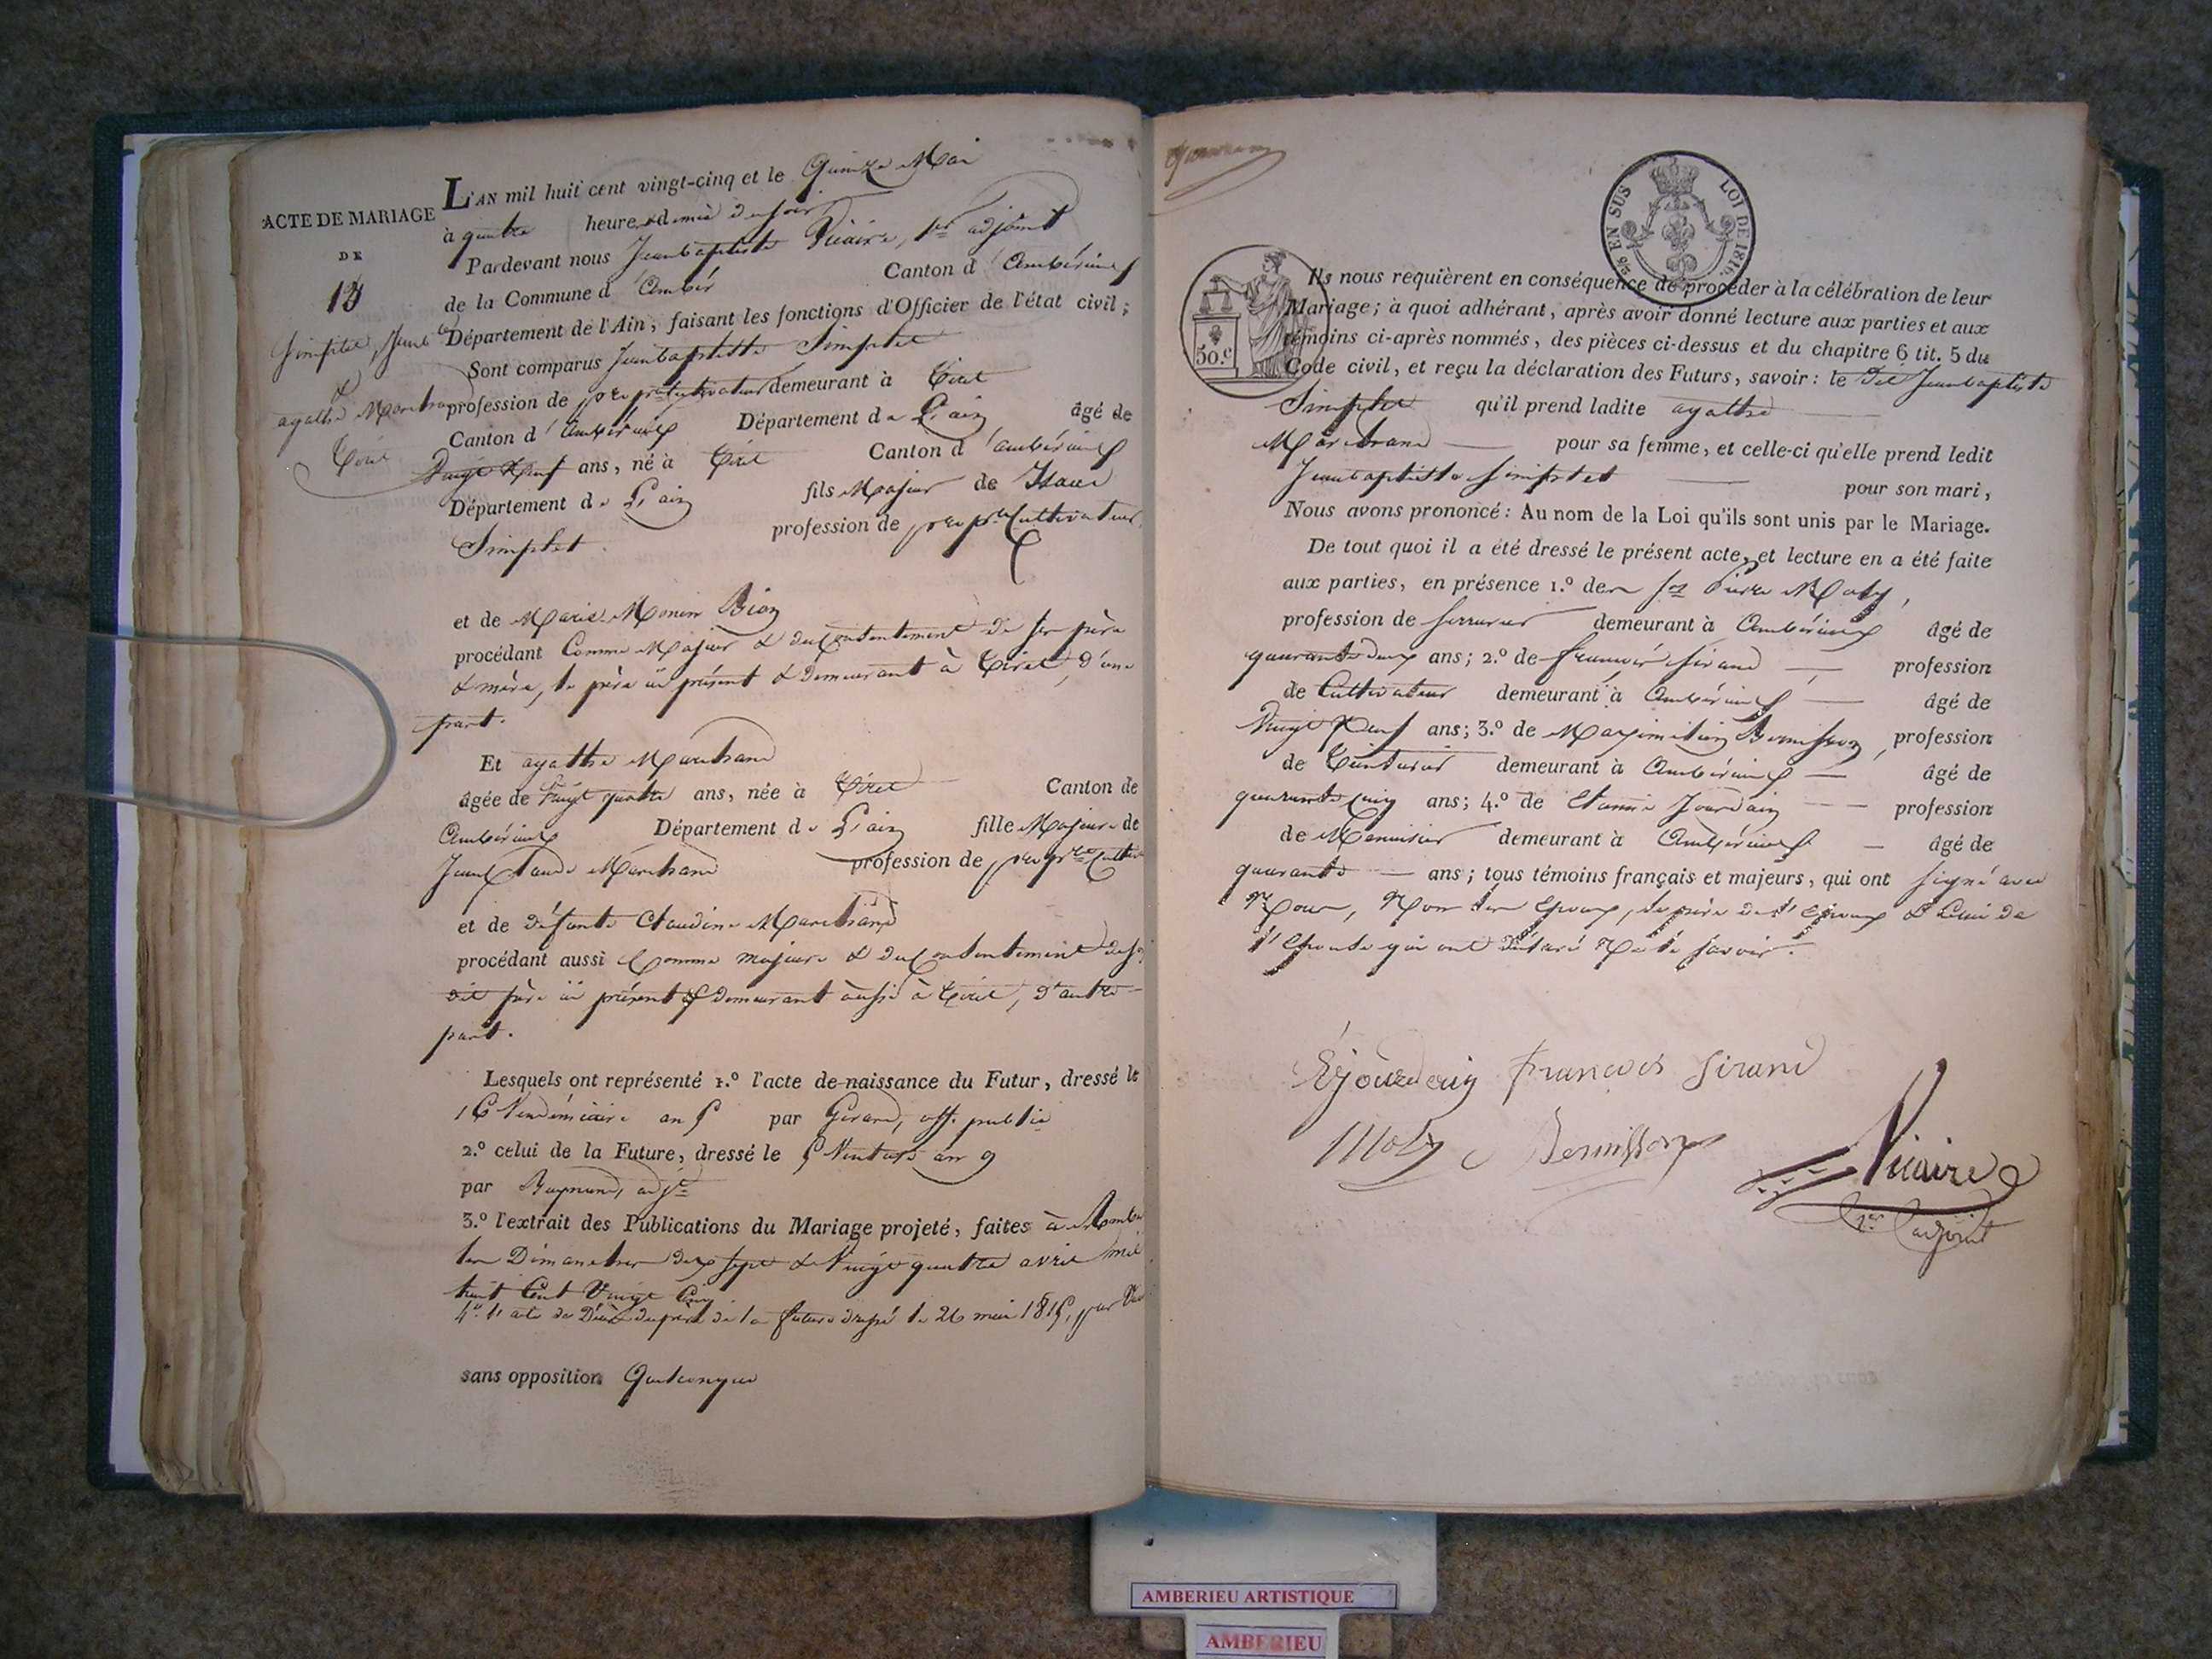 L'AN mil huit cent vingt-cinq et le Quinze Mai
ACTE DE MARIAGE
à quatre heures & demie du soir
DE
Pardevant nous Jeanbaptiste Vicaire, 1er adjoint
13
de la Commune d'Ambér Canton d'Ambérieux
Département de l'Ain, faisant les fonctions d'Officier de l'état civil;
Simplet, Jean bte
&
agathe Marchand
Tiret
Sont comparus Jeanbaptiste Simplet
profession de propre cultivateur demeurant à Tiret
Canton d'Ambérieux Département de L'ain âgé de
Vingt Neuf ans, né à Tiret Canton d'ambérieux
Département de L'ain fils Majeur de Isaac
Simplet profession de propre Cultivateur,
et de Marie Monin Bion
procédant Comme Majeur & du Consentement de ses père
& mère, le père ici présent & demeurant à Tiret, d'une
part.
Et agathe Marchand
âgée de Vingt quatre ans, née à Tiret Canton de
Ambérieux Département de L'ain fille Majeure de
Jean Claude Marchand profession de propre Cultiv
et de défunte Claudine Marchand
procédant aussi Comme majeure & du Consentement de son
dit père ici présent & demeurant aussi à Tiret, d'autre
part.
Lesquels ont représenté 1.º l'acte de naissance du Futur, dressé le
16 Vendémiaire an 5 par Girard, off. public
2.º celui de la Future, dressé le 5 Ventose an 9
par Raymond, adjt
3.º l'extrait des Publications du Mariage projeté, faites à Amber
les Dimanches dix sept & Vingt quatre avril mil
huit Cent Vingt Cinq
4.º l'acte de Décès de la future dressé le 26 mai 1815, par
sans opposition Quelconque
EN SUS
LOI DE 1816.
50.c
Ils nous requièrent en conséquence de procéder à la célébration de leur
Mariage; à quoi adhérant, après avoir donné lecture aux parties et aux
témoins ci-après nommés, des pièces ci-dessus et du chapitre 6 tit. 5 du
Code civil, et reçu la déclaration des Futurs, savoir: le dit Jeanbaptiste
Simplet qu'il prend ladite agathe
Marchand pour sa femme, et celle-ci qu'elle prend ledit
Jeanbaptiste Simplet pour son mari,
Nous avons prononcé: Au nom de la Loi qu'ils sont unis par le Mariage.
De tout quoi il a été dressé le présent acte, et lecture en a été faite
aux parties, en présence 1.º des srs Pierre Moly,
profession de serrurier demeurant à Ambérieux âgé de
quarante deux ans; 2.º de françois Sirand profession
de Cultivateur demeurant à Ambérieux âgé de
Vingt Neuf ans; 3.º de Maximilien Bernisson, profession
de Teinturier demeurant à Ambérieux âgé de
quarante Cinq ans; 4.º de Etienne Jourdain profession
de Menuisier demeurant à Ambérieux âgé de
quarante ans; tous témoins français et majeurs, qui ont signé avec
Nous, Non les Epoux, le père de l'Epoux & Celui de
l'Epouse qui ont déclaré Ne le savoir.
E Jourdain françois Sirand
Moly Bernisson Vicaire
1er adjoint
AMBERIEU ARTISTIQUE
AMBERIEU